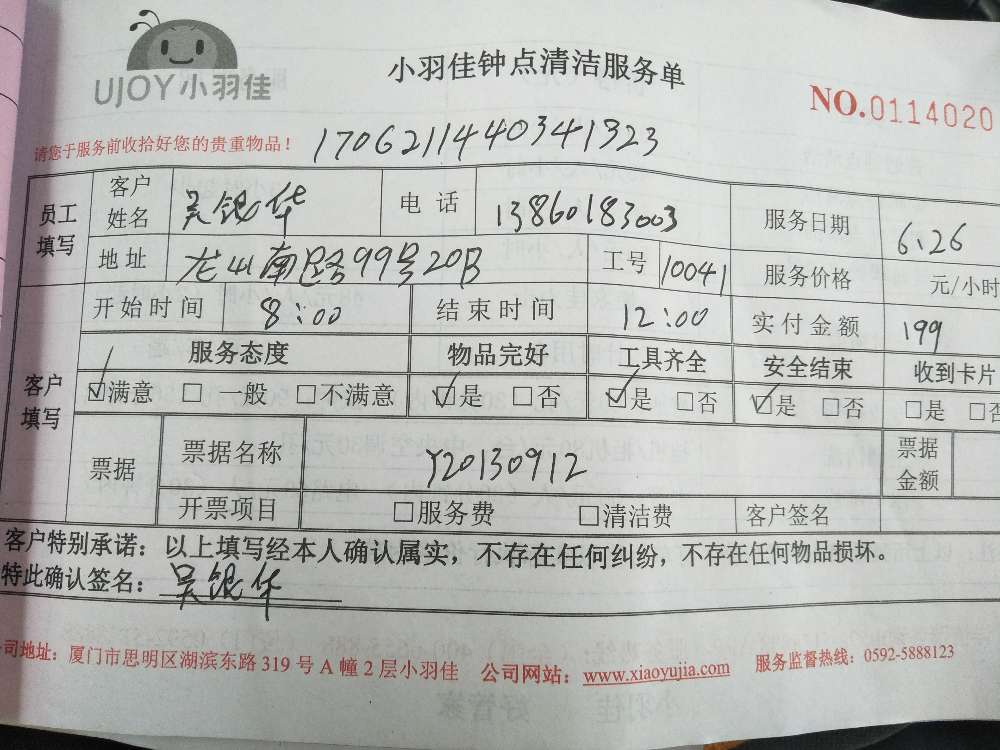 UJOY小羽佳
小羽佳钟点清洁服务单
NO.0114020
请您于服务前收拾好您的贵重物品！ 1706211440341323
员工填写 客户姓名 吴银华 电话 13860183003 服务日期 6.26
地址 龙山南路99号20B 工号 10041 服务价格 元/小时
开始时间 8:00 结束时间 12:00 实付金额 199
客户填写 服务态度 物品完好 工具齐全 安全结束 收到卡片
☑满意 □一般 □不满意 ☑是 □否 ☑是 □否 ☑是 □否 □是 □否
票据 票据名称 Y20130912 票据金额
开票项目 □服务费 □清洁费 客户签名
客户特别承诺：以上填写经本人确认属实，不存在任何纠纷，不存在任何物品损坏。
特此确认签名：吴银华
司地址：厦门市思明区湖滨东路319号A幢2层小羽佳 公司网站：www.xiaoyujia.com 服务监督热线：0592-5888123